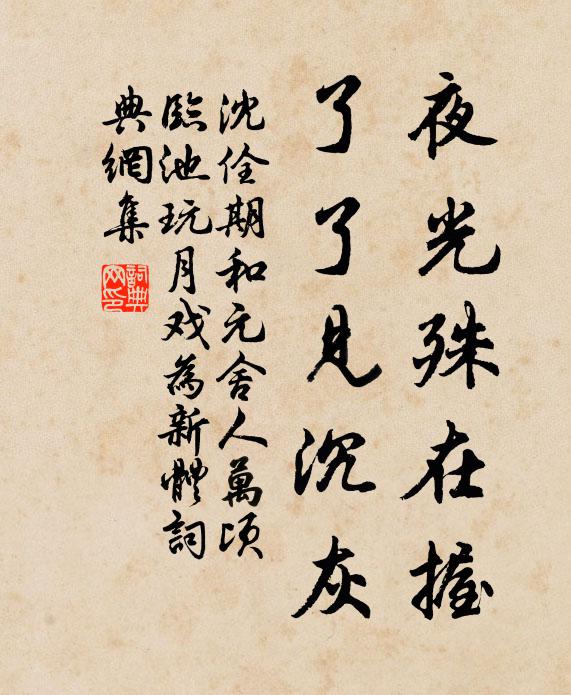 夜光殊在握
了了見沉灰
沈佺期和元舍人萬頃
臨池玩月戏為新體詞
典網集
詞典網印